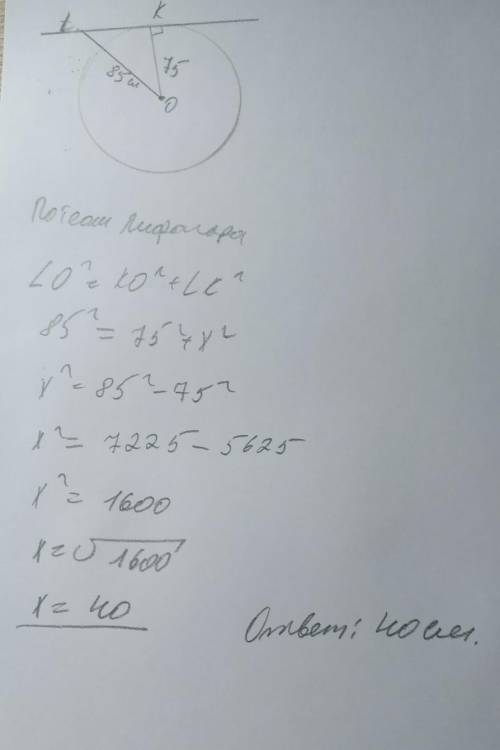 L K
85см 75
O
По теор Пифагора
LO² = KO² + LK²
85² = 75² + x²
x² = 85² - 75²
x² = 7225 - 5625
x² = 1600
x = √1600
x = 40
Ответ: 40 см.